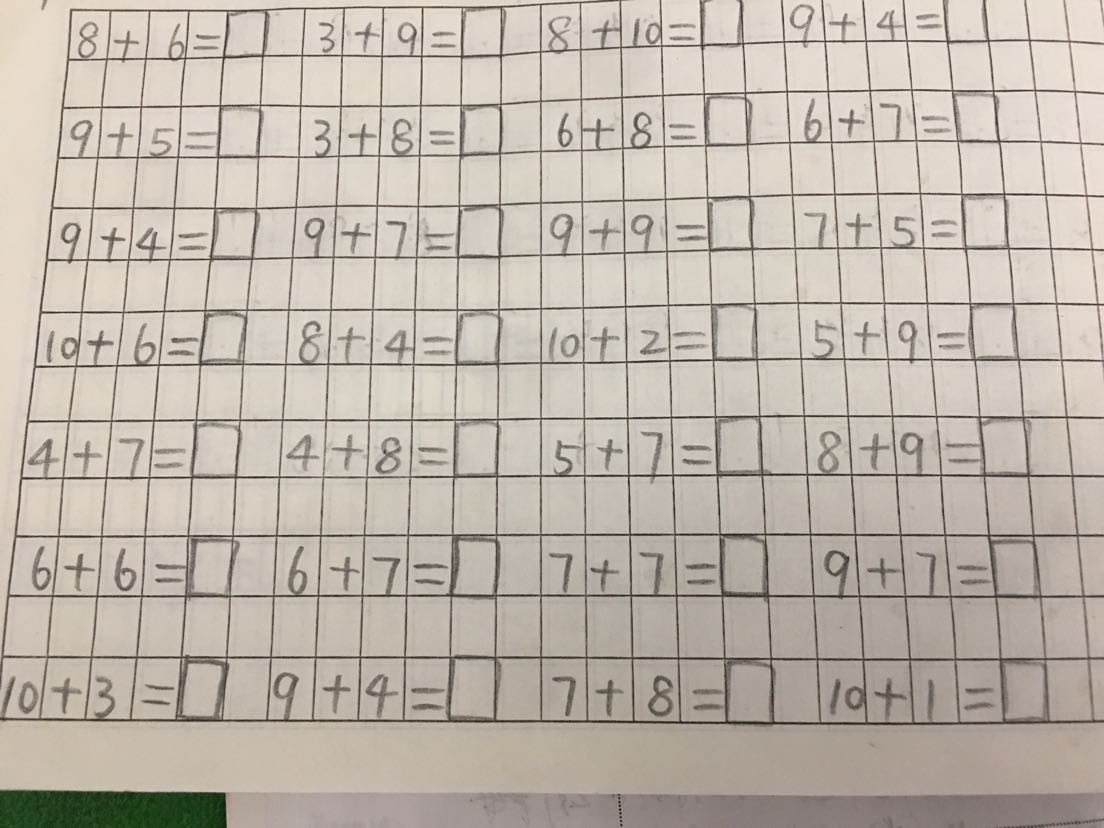 8+6=□ 3+9=□ 8+10=□ 9+4=□
9+5=□ 3+8=□ 6+8=□ 6+7=□
9+4=□ 9+7=□ 9+9=□ 7+5=□
10+6=□ 8+4=□ 10+2=□ 5+9=□
4+7=□ 4+8=□ 5+7=□ 8+9=□
6+6=□ 6+7=□ 7+7=□ 9+7=□
10+3=□ 9+4=□ 7+8=□ 10+1=□